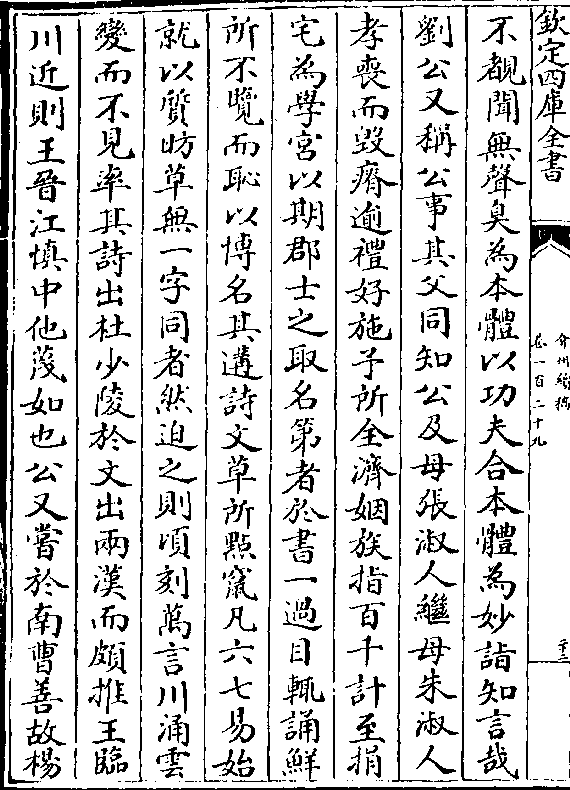 欽定四庫全書
弇州續稿
卷一百二十九
二十三
不覩聞無聲臭為本體以功夫合本體為妙詣知言哉
劉公又稱公事其父同知公及母張淑人繼母朱淑人
孝喪而毀瘠逾禮好施予所全濟姻族指百千計至捐
宅為學宮以期郡士之取名第者於書一過目輒誦鮮
所不覽而恥以博名其遘詩文草所㸃竄凡六七易始
就以質昉草無一字同者然迫之則頃刻萬言川涌雲
變而不見率其詩出杜少陵於文出兩漢而頗推王臨
川近則王晉江慎中他蔑如也公又嘗於南曹善故楊